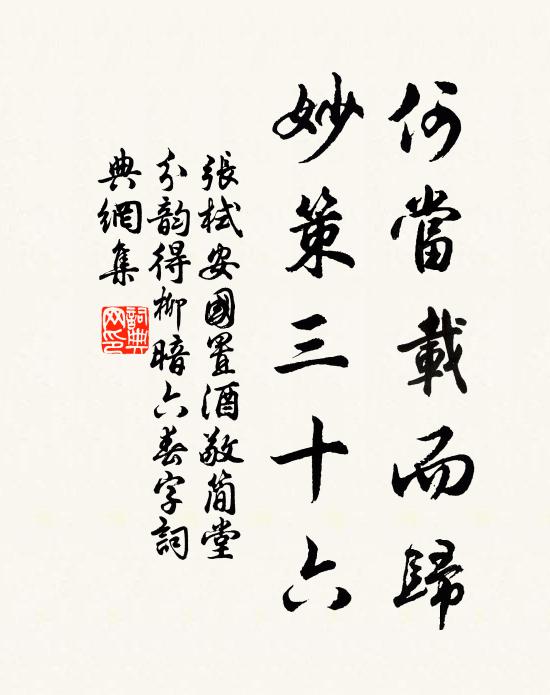 何當載而歸
妙策三十六
張栻安國置酒敬简堂
分韵得柳暗六春字詞
典網集
詞典网印